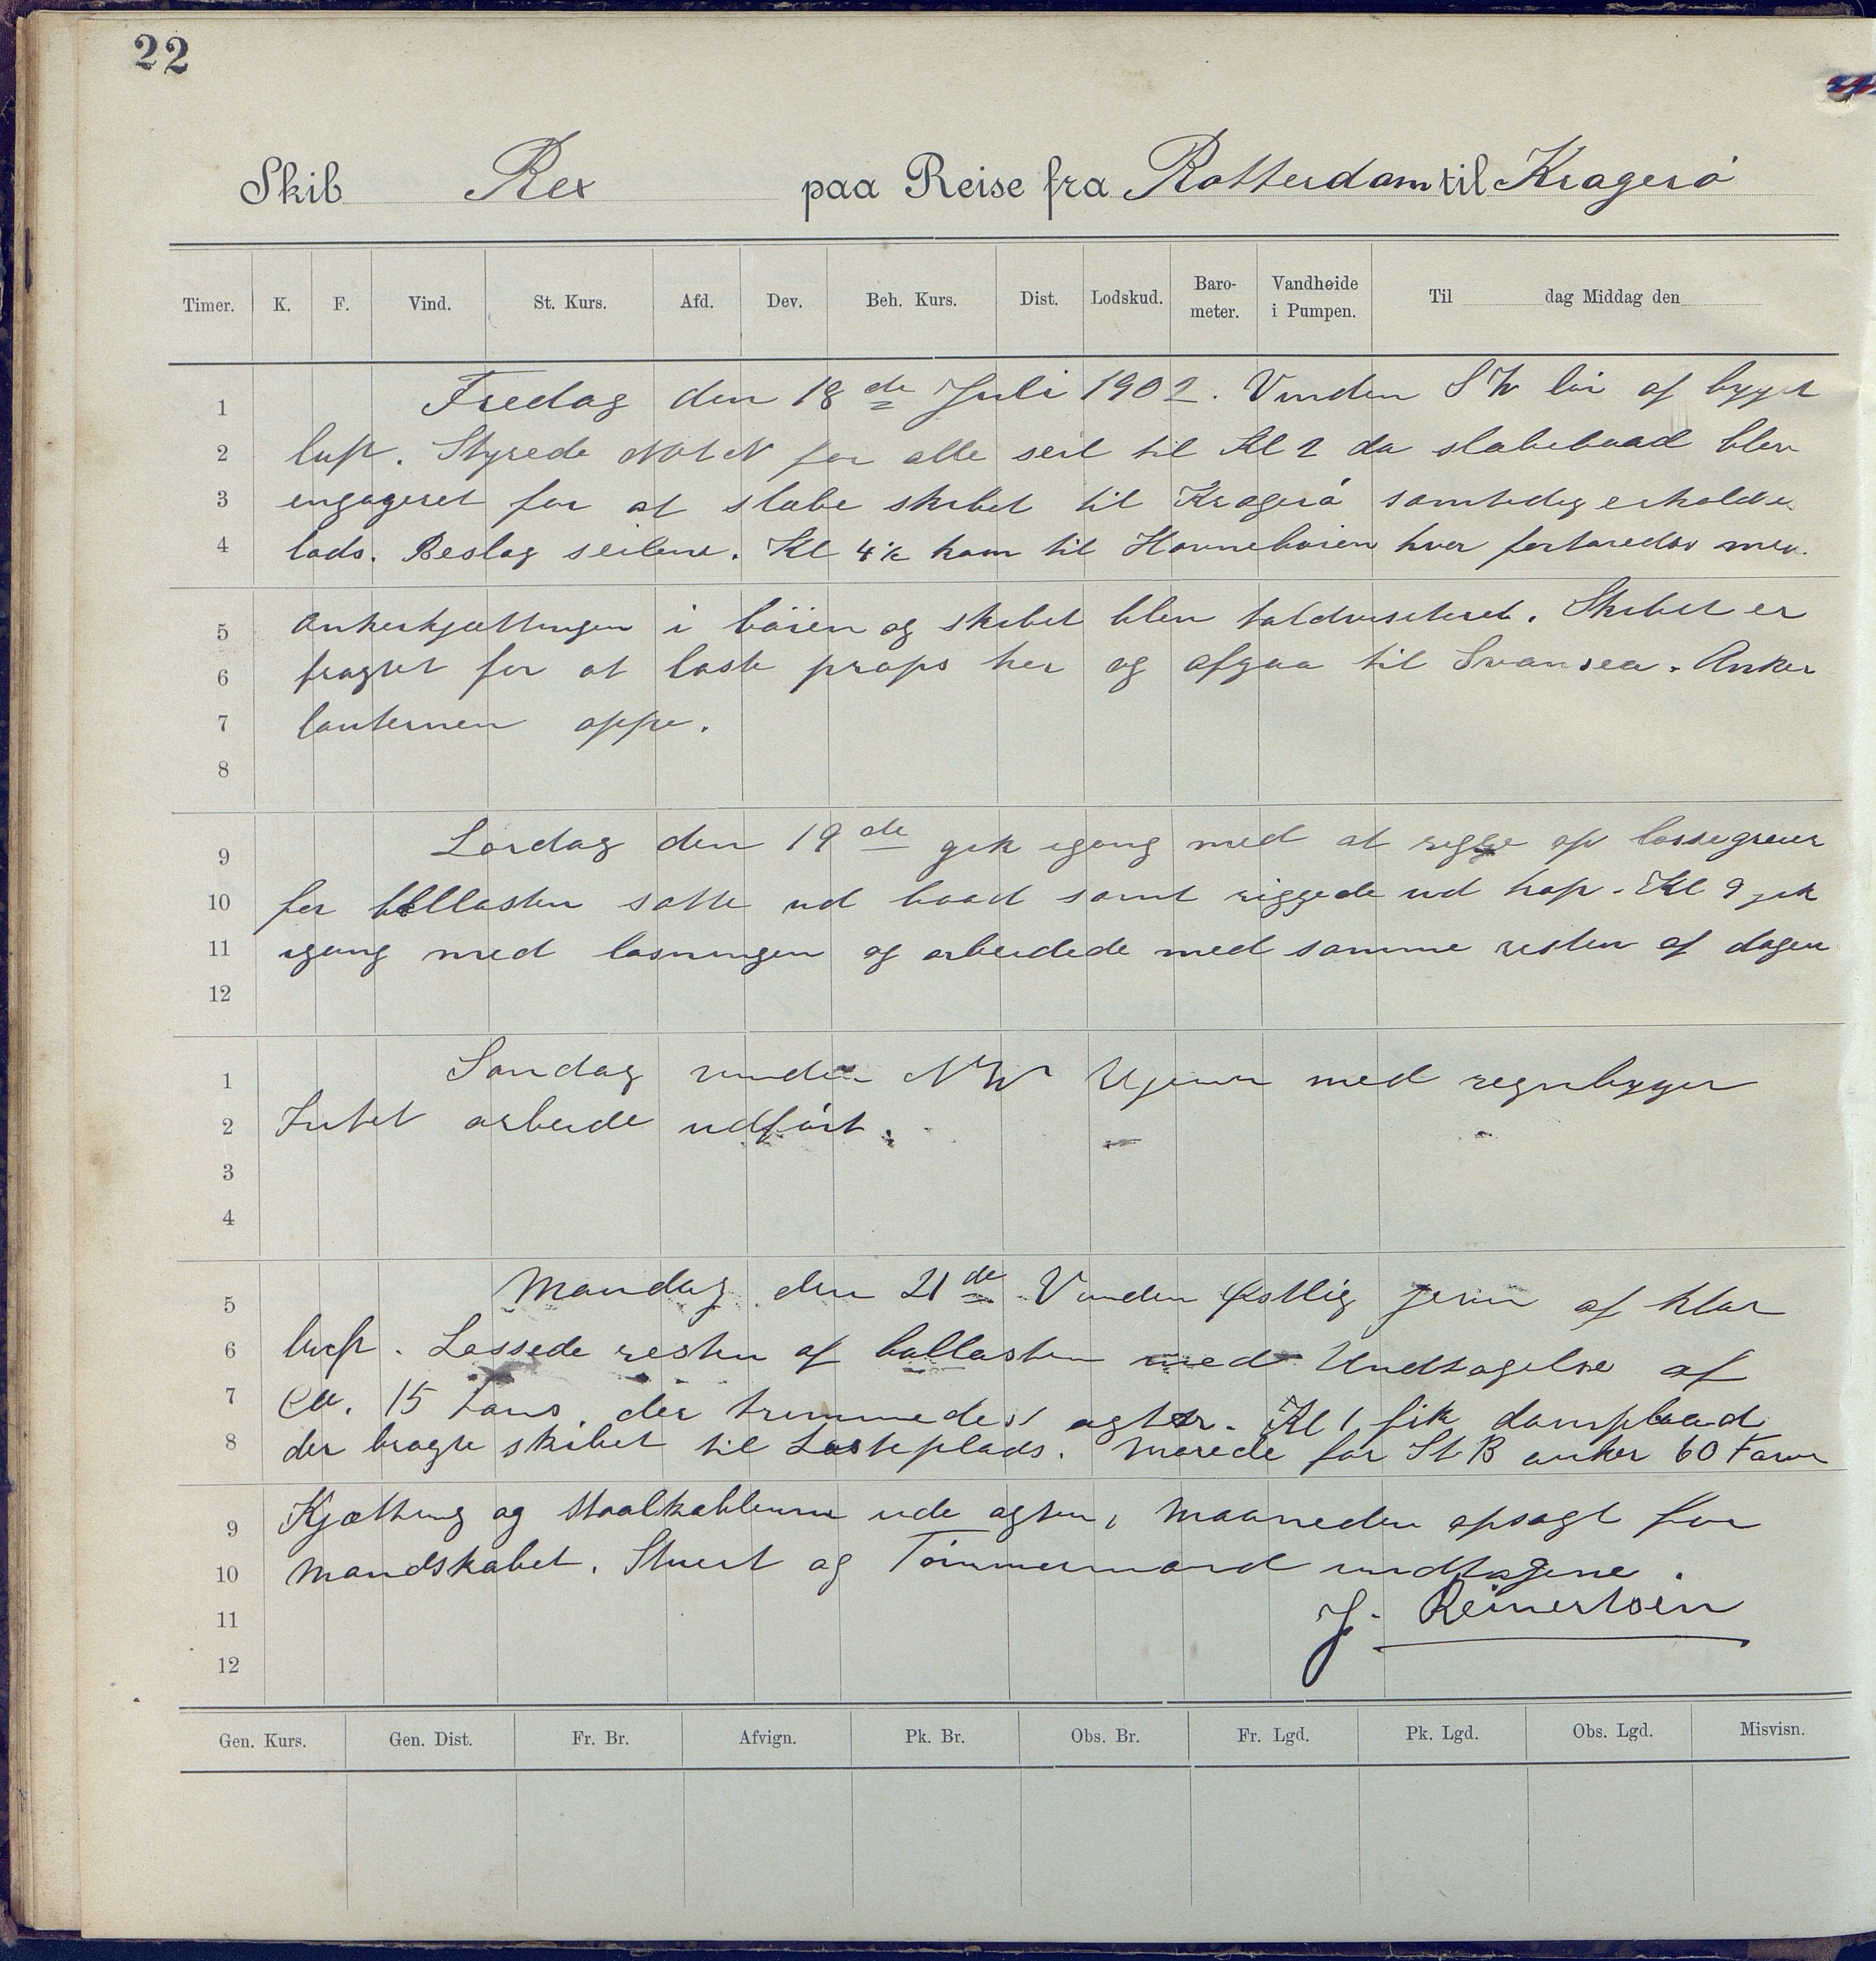 22
Skib Rex paa Reise fra Rotterdam til Kragerö
Timer. K. F. Vind. St. Kurs. Afd. Dev. Beh. Kurs. Dist. Lodskud. Baro-meter. Vandhøide i Pumpen. Til dag Middag den
1 Fredag den 18de Juli 1902. Vinden SW lör af bygget
2 luft. Styrede for alle seil til Kl 2 da slæbebaad blev
3 engageret for at slæbe skibet til Kragerö samtidig erholdtes
4 lods. Beslog seilene. Kl 4½ kom til Havneböien hvor fortöiedes med
5 Ankerkjættingen i böien og skibet blev toldvisiteret. Skibet er
6 fragtet for at laste props her og afgaa til Svansea. Anker
7 lanternen oppe.
8
9 Lördag den 19de gik igang med at rigge op lossegreier
10 for ballasten satte ud baad samt riggede ud trap. Kl 9 gik
11 igang med losningen og arbeidede med samme resten af dagen
12
1 Söndag vinden NW Ujevn med regnbyger
2 Intet arbeide udfört.
3
4
5 Mandag den 21de Vinden Østlig jevn af klar
6 luft. Lossede resten af ballasten med Undtagelse af
7 Ca. 15 tons, der trimmedes agter. Kl 1 fik dampbaad
8 der bragte skibet til Lasteplads. Mörede for St B anker 60 Favne
9 Kjætting og Staalkablerne ude agter, Maaneden opsagt for
10 Mandskabet. Stuert og Tömmermand undtagene.
11 J. Reinertsen
12
Gen. Kurs. Gen. Dist. Fr. Br. Afvign. Pk. Br. Obs. Br. Fr. Lgd. Pk. Lgd. Obs. Lgd. Misvisn.